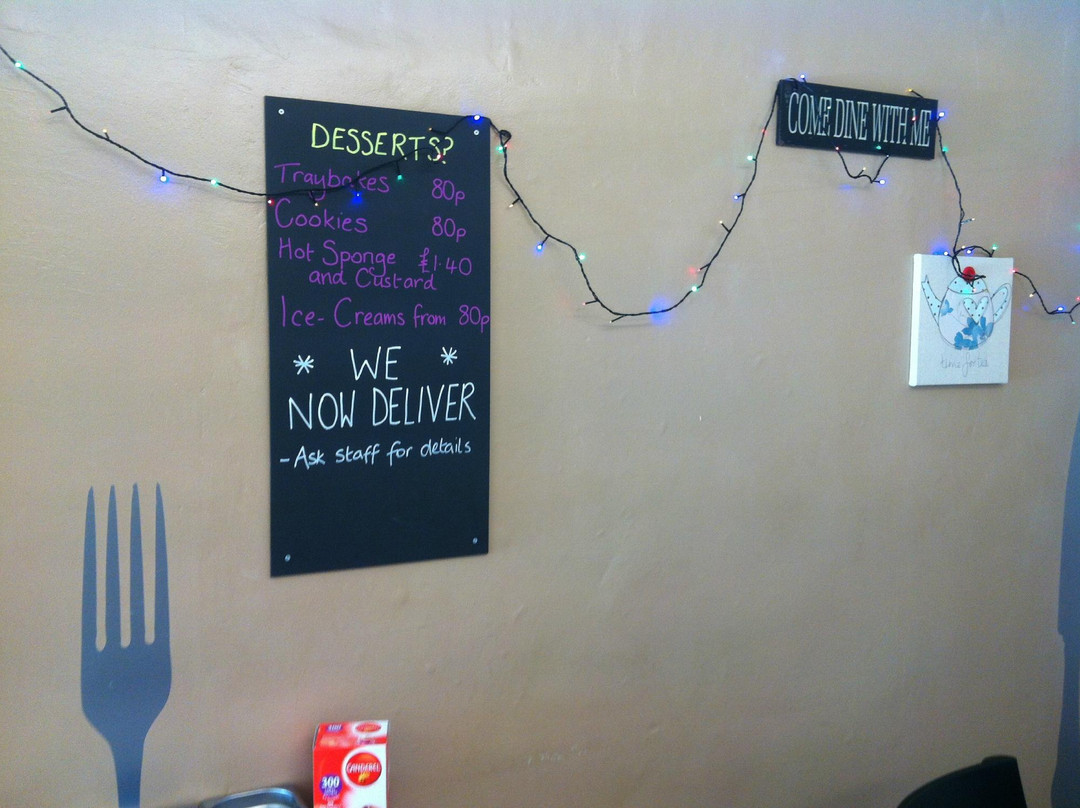 DESSERTS?
Traybakes 80p
Cookies 80p
Hot Sponge £1.40
and Custard
Ice-Creams from 80p
* WE *
NOW DELIVER
- Ask staff for details
COME DINE WITH ME
time for tea
300
CANDEREL
300